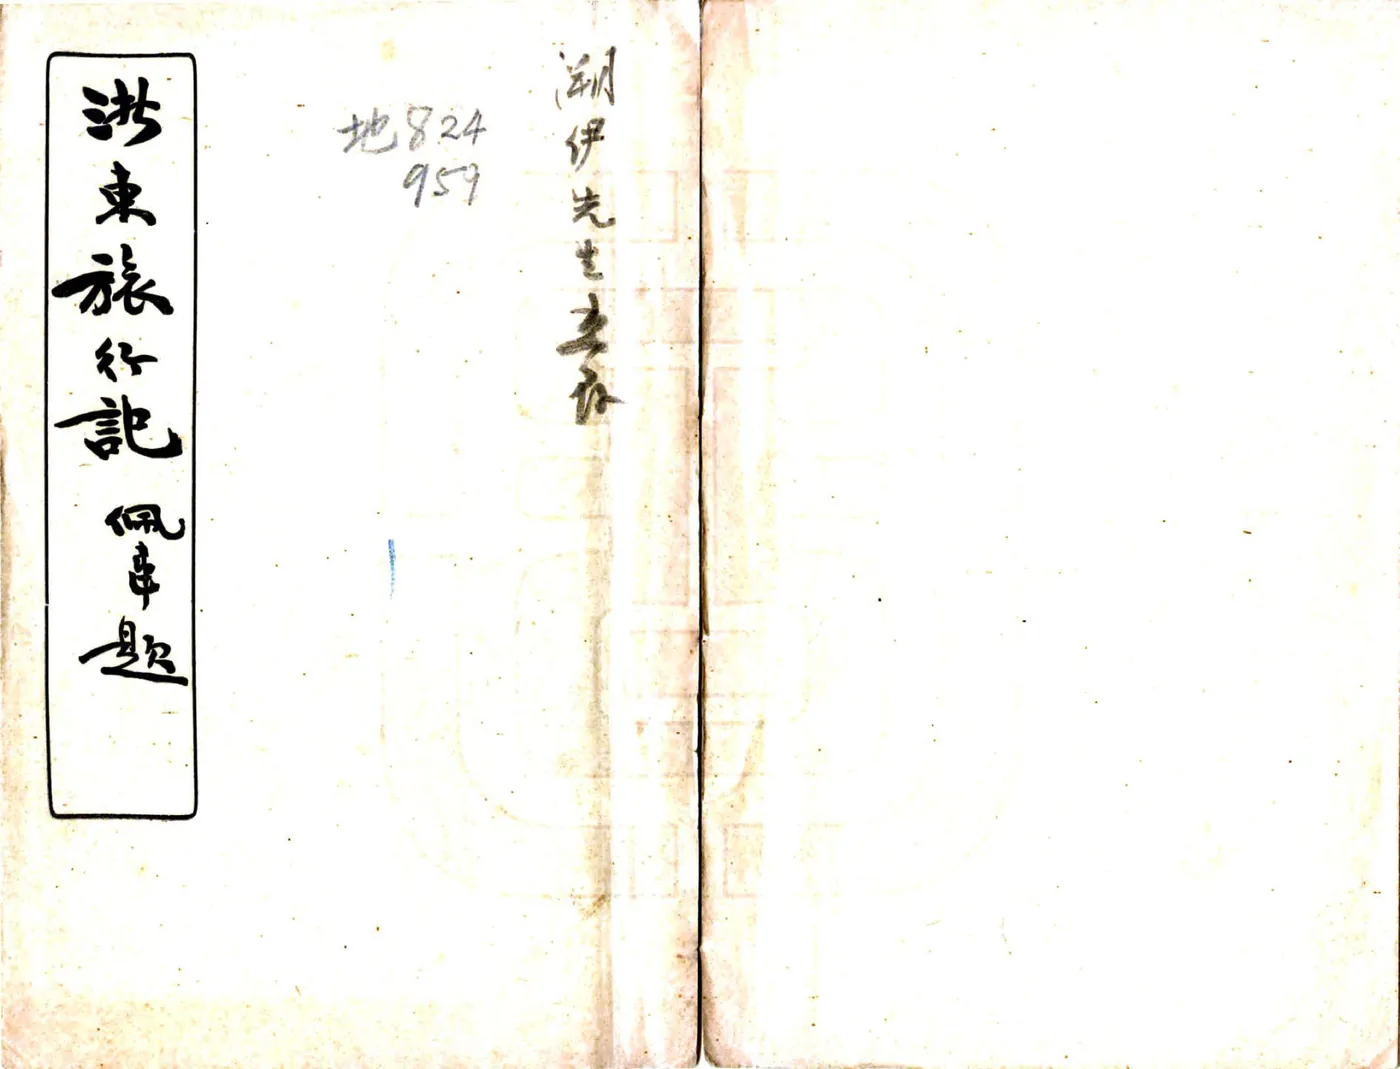 溯伊先生惠存
地824
959
浙東旅行記
佩韋題